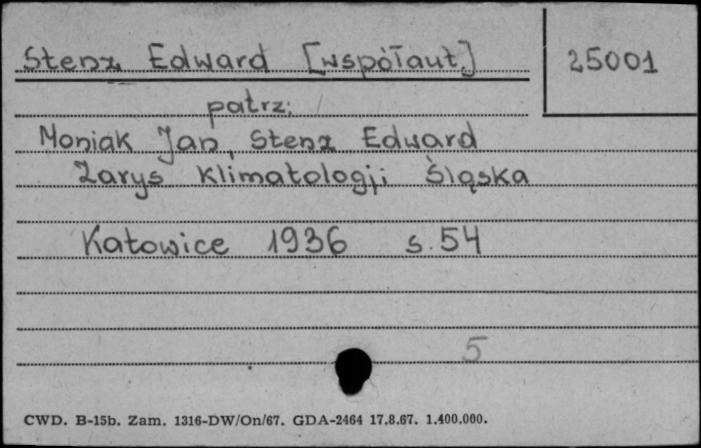 Stenz Edward [współaut.]
25001
patrz:
Moniak Jan, Stenz Edward
Zarys klimatologji Śląska
Katowice 1936 s. 54
5
CWD. B-15b. Zam. 1316-DW/On/67. GDA-2464 17.8.67. 1.400.000.